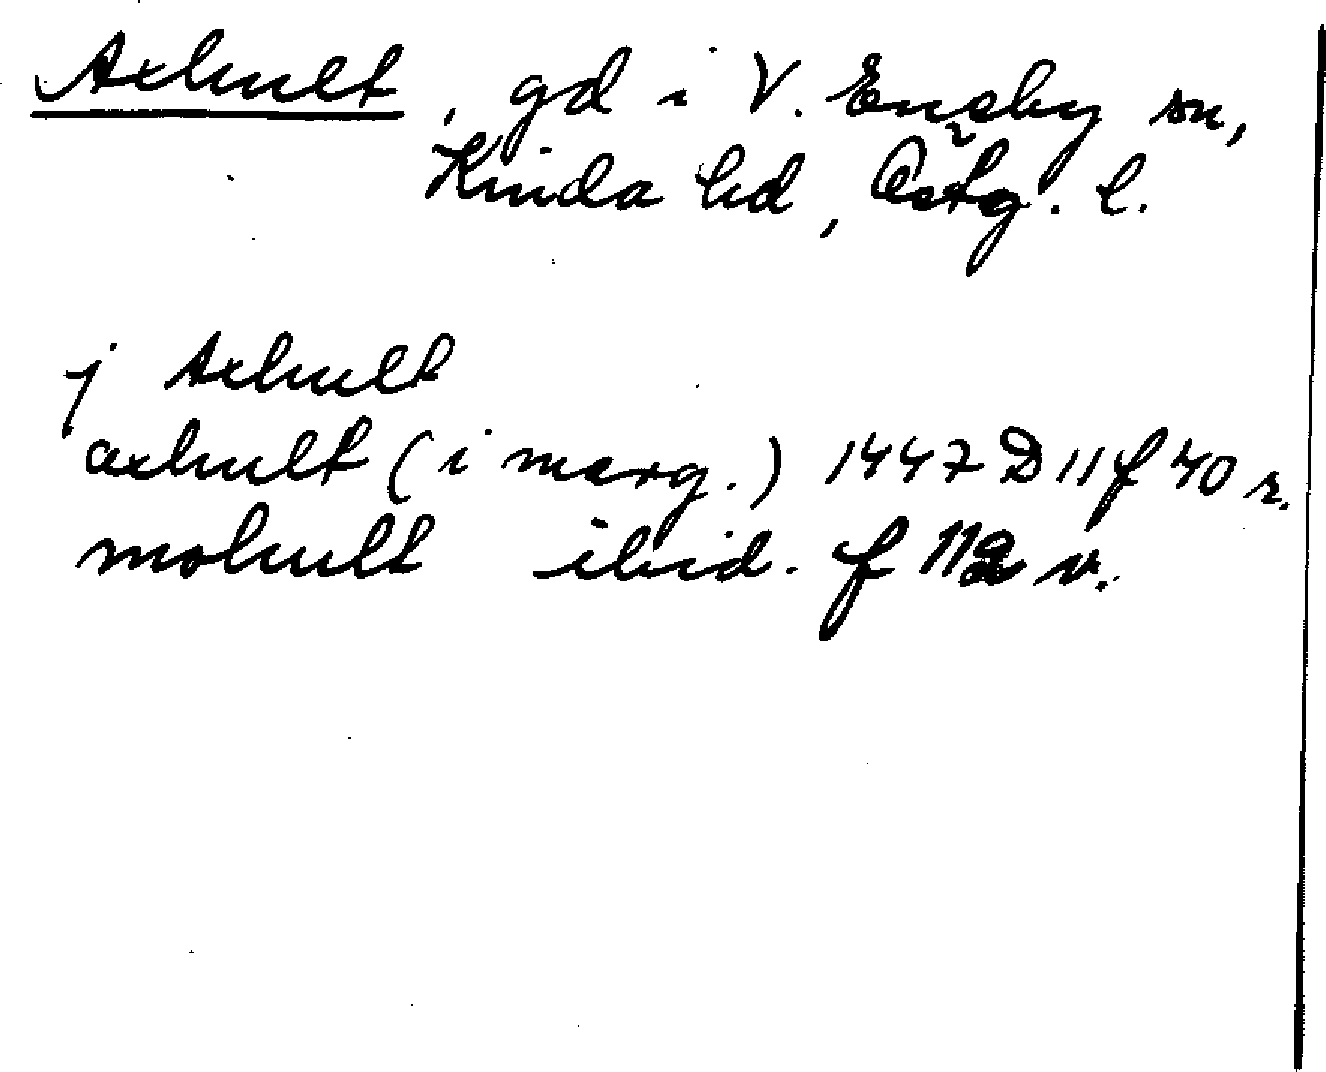 Axhult, gd i V. Eneby sn,
Kinda hd, Östg. l.
j Axhult
axhult (i marg.) 1447 D 11 f 40 r.
mohult ibid. f 112 v.